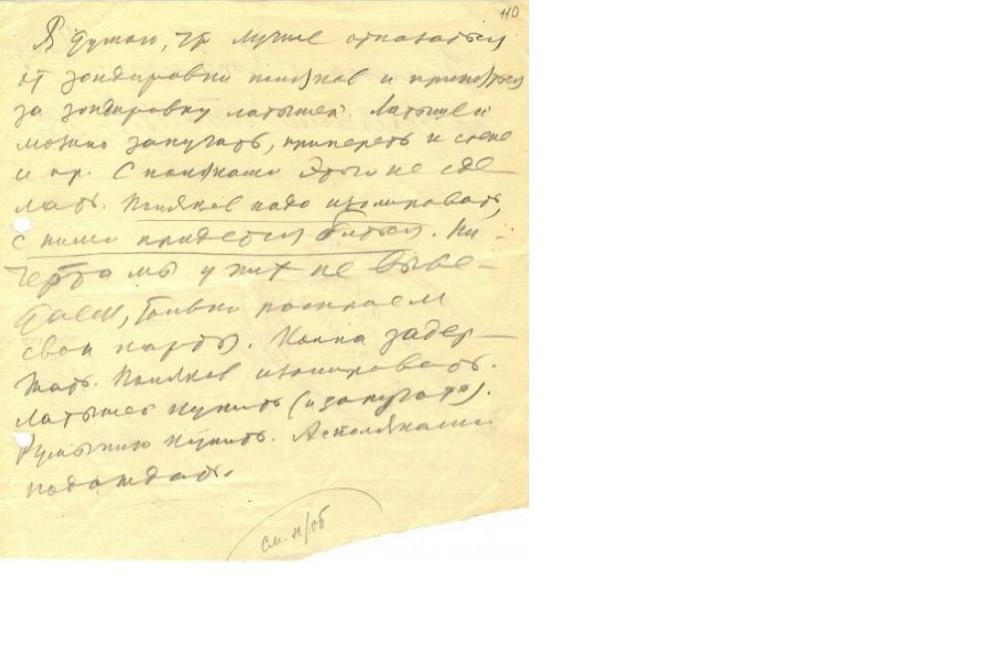 110
Я думаю, что лучше отказаться
от зондировки поляков и приняться
за зондировку латышей. Латышей
можно запугать, припереть к стене
и пр. С поляками этого не сде-
лать. Поляков надо изолировать,
с ними придется биться. Ни
черта мы у них не выве-
даем, только раскроем
свои карты. Конка задер-
жать. Поляков изолировать.
Латышей купить (и запугать).
Румынию купить. А с поляками
подождать.
см. н/об